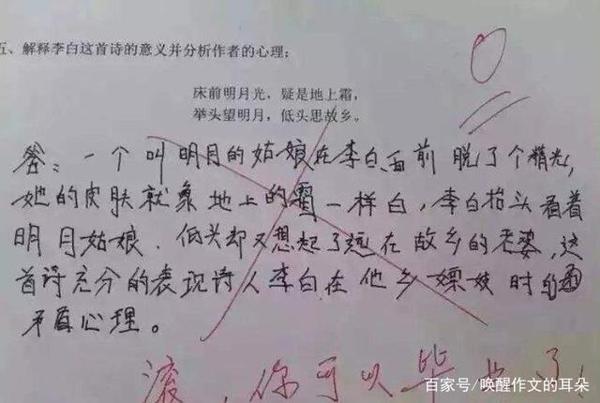 五、解释李白这首诗的意义并分析作者的心理：
0
床前明月光，疑是地上霜，
举头望明月，低头思故乡。
答：一个叫明月的姑娘在李白面前脱了个精光，
她的皮肤就象地上的霜一样白，李白抬头看着
明月姑娘．低头却又想起了远在故乡的老婆，这
首诗充分的表现诗人李白在他乡嫖妓时的
矛盾心理。
滚，你可以毕业了！
百家号/唤醒作文的耳朵